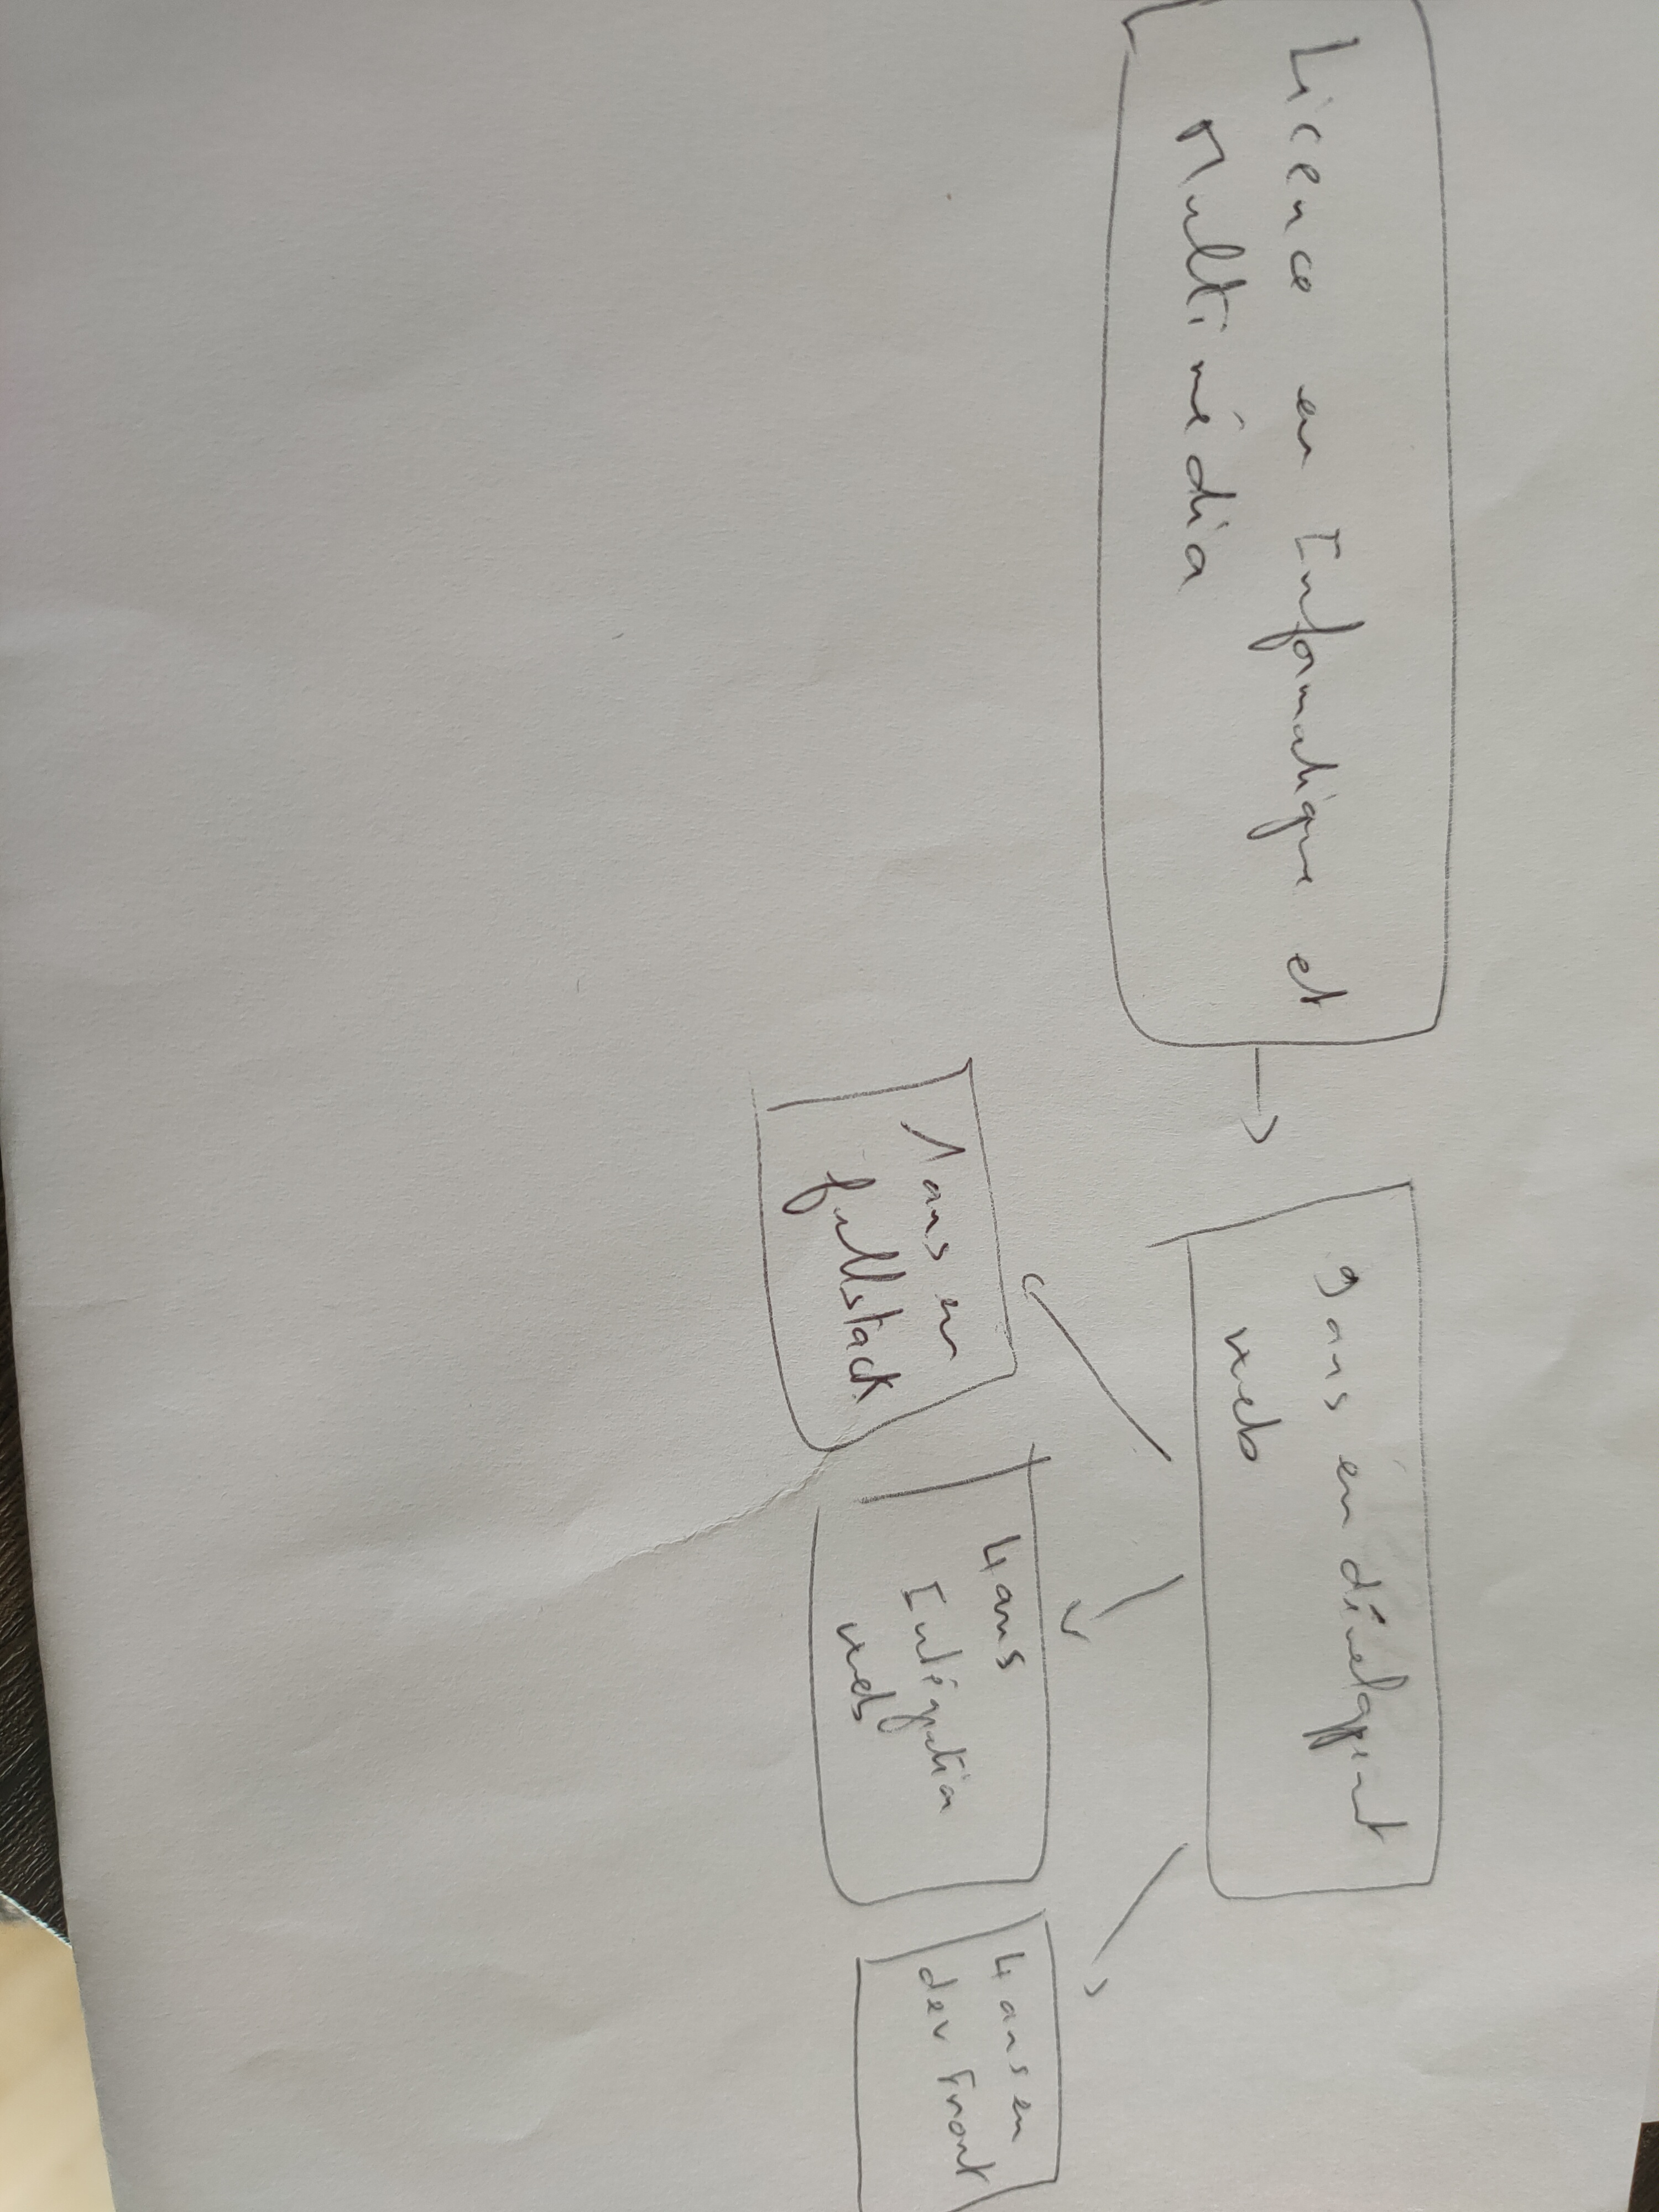 Licence en Informatique et
Multimédia
9 ans en développement
web
1 ans en
fullstack
4 ans
Intégration
web
4 ans en
dev Front